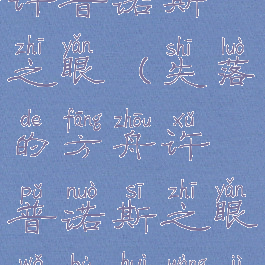 许普诺斯
zhī yǎn shī luò
之眼（失落
de fāng zhōu xǔ
的方舟许
pǔ nuò sī zhī yǎn
普诺斯之眼